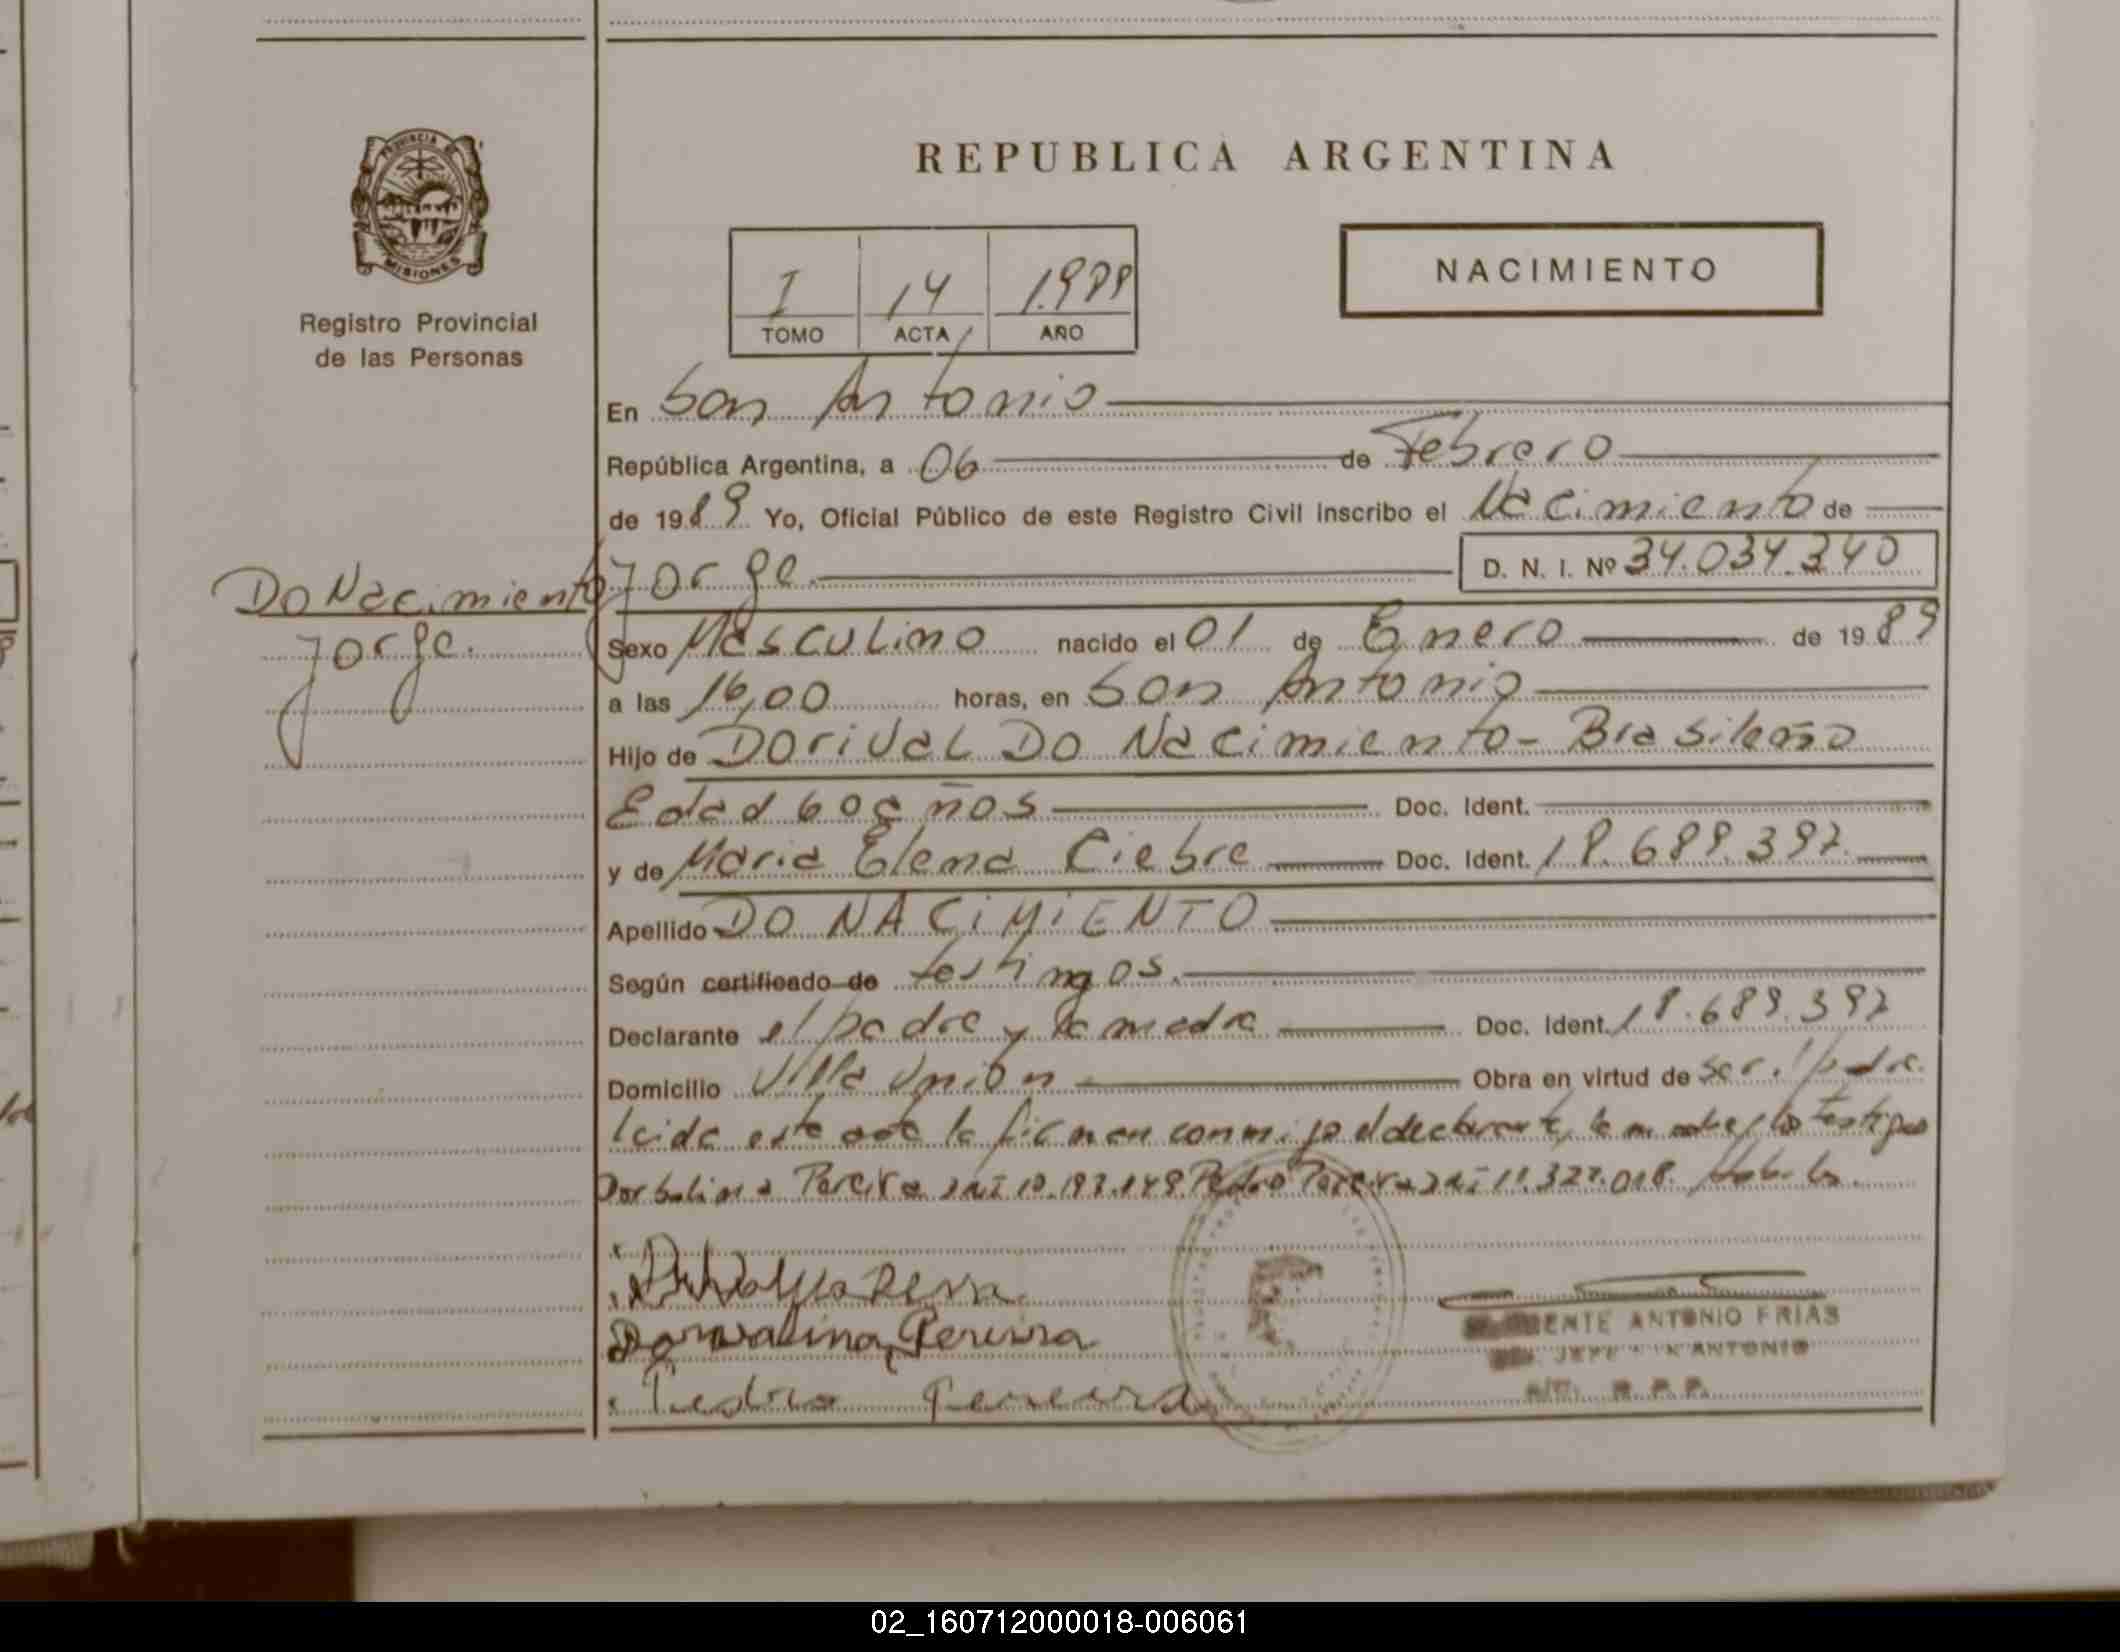 PROVINCIA DE
MISIONES
Registro Provincial
de las Personas
REPUBLICA ARGENTINA
I 14 1.989
TOMO ACTA AÑO
NACIMIENTO
En San Antonio
República Argentina, a 06 de Febrero
de 1989 Yo, Oficial Público de este Registro Civil inscribo el Nacimiento de
Jorge D. N. I. Nº 34.034.340
Do Nacimiento
Jorge.
Sexo Masculino nacido el 01 de Enero de 1989
a las 16,00 horas, en San Antonio
Hijo de Dorival Do Nacimiento - Brasileño
Edad 60 años Doc. Ident.
y de Maria Elena Ciebre Doc. Ident. 18.689.392
Apellido DO NACIMIENTO
Según certificado de testingos.
Declarante el padre y la madre Doc. Ident. 18.689.392
Domicilio Villa Unión Obra en virtud de ser padre
leida este acta la firman conmigo el declarante, la madre y los testigos
Pereira DNI Pedro Pereira DNI 11.327.018.
Dorvalina Pereira
Pedro Pereira
ENTE ANTONIO FRIAS
JEFE ANTONIO
R. P. P.
02_160712000018-006061